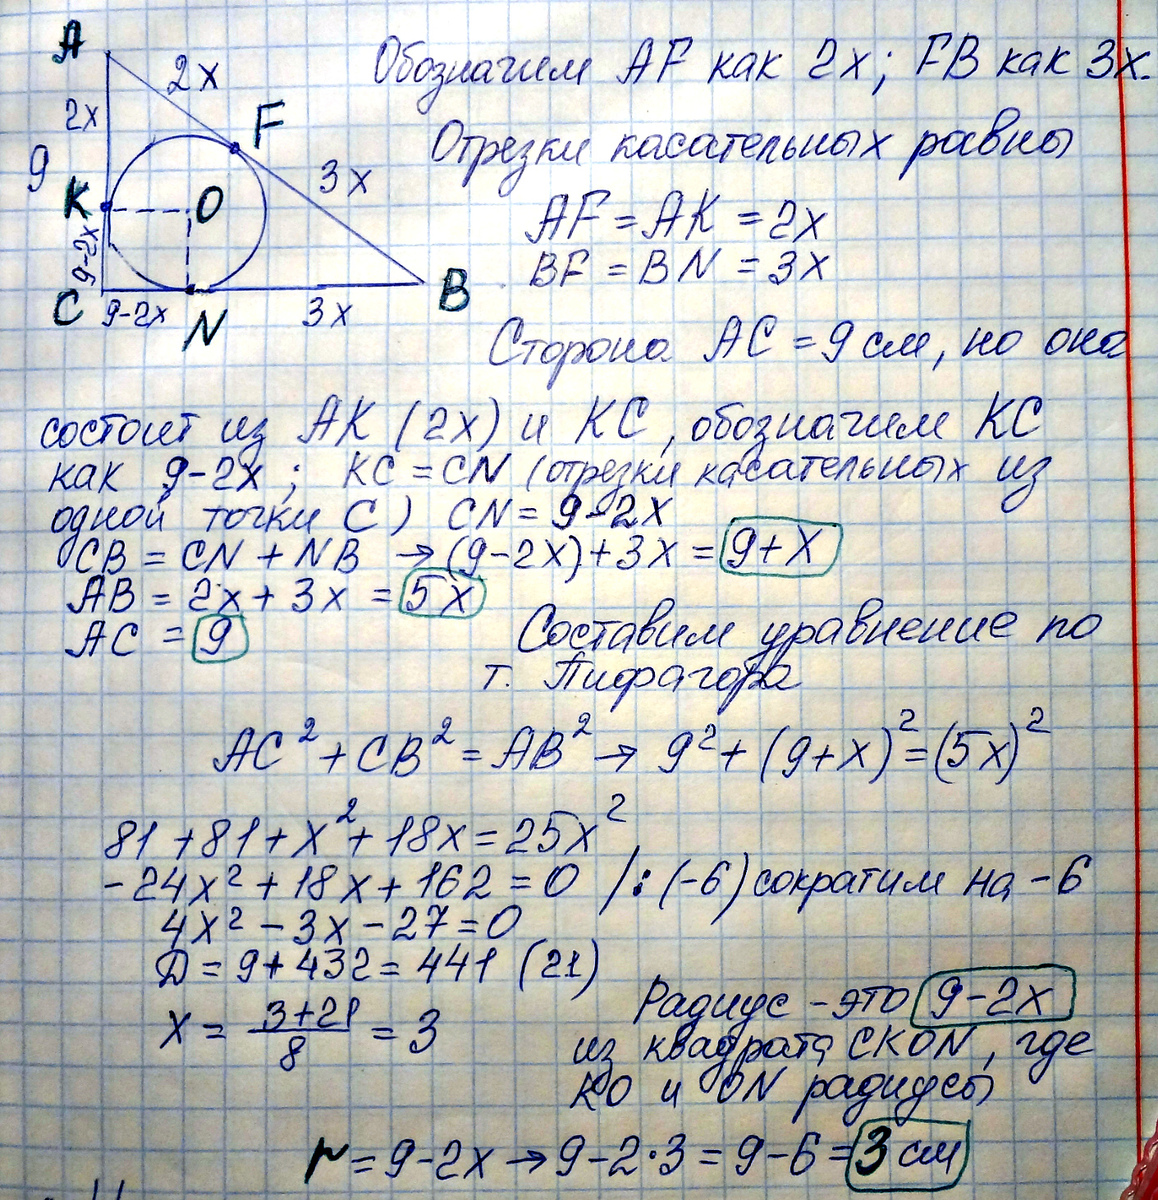 A
2x
Обозначим AF как 2x; FB как 3x.
2x
F
Отрезки касательных равны
9
3x
K
O
AF = AK = 2x
9-2x
BF = BN = 3x
C
9-2x
N
3x
B
Сторона AC = 9 см, но она
состоит из AK (2x) и KC, обозначим KC
как 9-2x; KC = CN (отрезки касательных из
одной точки C) CN = 9-2x
CB = CN + NB → (9-2x)+3x = 9+x
AB = 2x + 3x = 5x
AC = 9
Составим уравнение по
т. Пифагора
AC² + CB² = AB² → 9² + (9+x)² = (5x)²
81 + 81 + x² + 18x = 25x²
-24x² + 18x + 162 = 0 /: (-6) сократим на -6
4x² - 3x - 27 = 0
Д = 9 + 432 = 441 (21)
x = 3+21 / 8 = 3
Радиус - это 9-2x
из квадрата CKON, где
KO и ON радиусы
r = 9-2x → 9-2·3 = 9-6 = 3 см